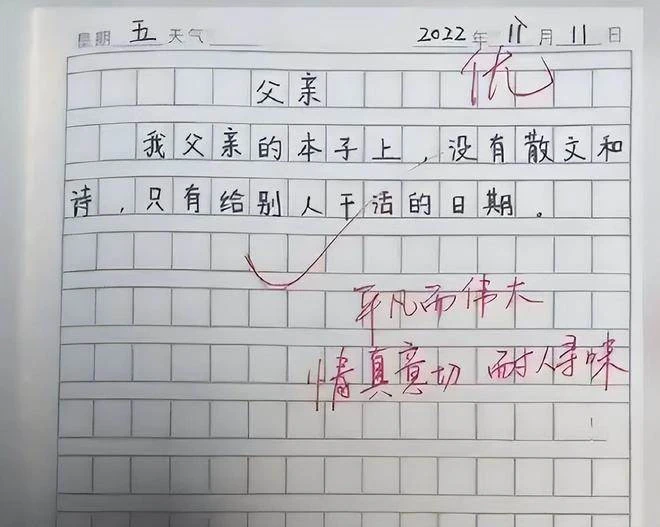 星期 五 天气 2022 年 11 月 11 日
优
父亲
我父亲的本子上，没有散文和
诗，只有给别人干活的日期。
平凡而伟大
情真意切 耐人寻味